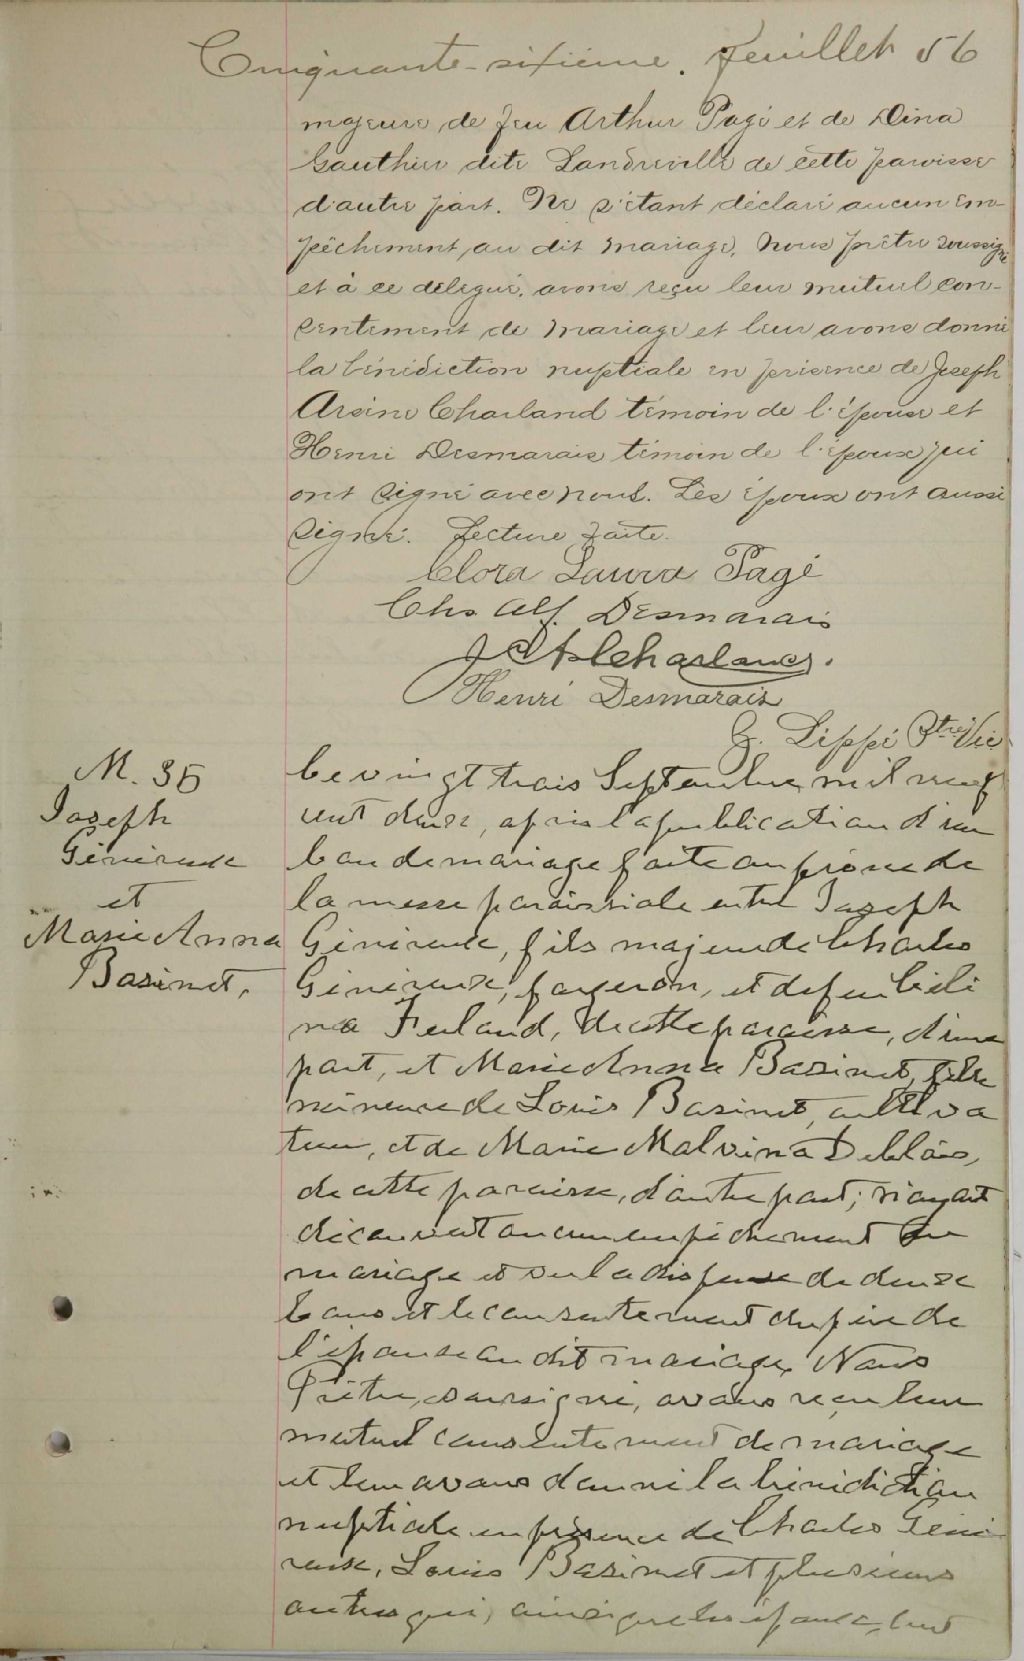 Cinquante-sixième. feuillet 56
majeure de feu Arthur Pagé et de Dina
Gauthier dite Landreville de cette paroisse
d'autre part. Ne s'étant déclaré aucun em-
pêchement au dit mariage, Nous prêtre soussigné
et à ce délégué, avons reçu leur mutuel con-
sentement de mariage et leur avons donné
la bénédiction nuptiale en présence de Joseph
Arsène Charland témoin de l'épouse et
Henri Desmarais témoin de l'époux qui
ont signé avec nous. Les époux ont aussi
signé. Lecture faite.
Clora Laura Pagé
Chs Alf. Desmarais
J A Charland.
Henri Desmarais
G. Lippé Ptre Vic
M. 35
Joseph
Généreux
et
Marie Anna
Basinet.
Le vingt trois Septembre mil neuf
cent douze, après la publication d'un
ban de mariage faite au prône de
la messe paroissiale entre Joseph
Généreux, fils majeur de Charles
Généreux, forgeron, et de feu Céli
na Ferland, de cette paroisse, d'une
part, et Marie Anna Basinet, fille
mineure de Louis Basinet, cultiva
teur, et de Marie Malvina Deblois,
de cette paroisse, d'autre part; n'ayant
découvert aucun empêchement au
mariage et vu la dispense de deux
bans et le consentement du père de
l'épouse au dit mariage, Nous
Prêtre, soussigné, avons reçu leur
mutuel consentement de mariage
et leur avons donné la bénédiction
nuptiale en présence de Charles Géné
reux, Louis Basinet et plusieurs
autres qui, ainsi que les époux, ont